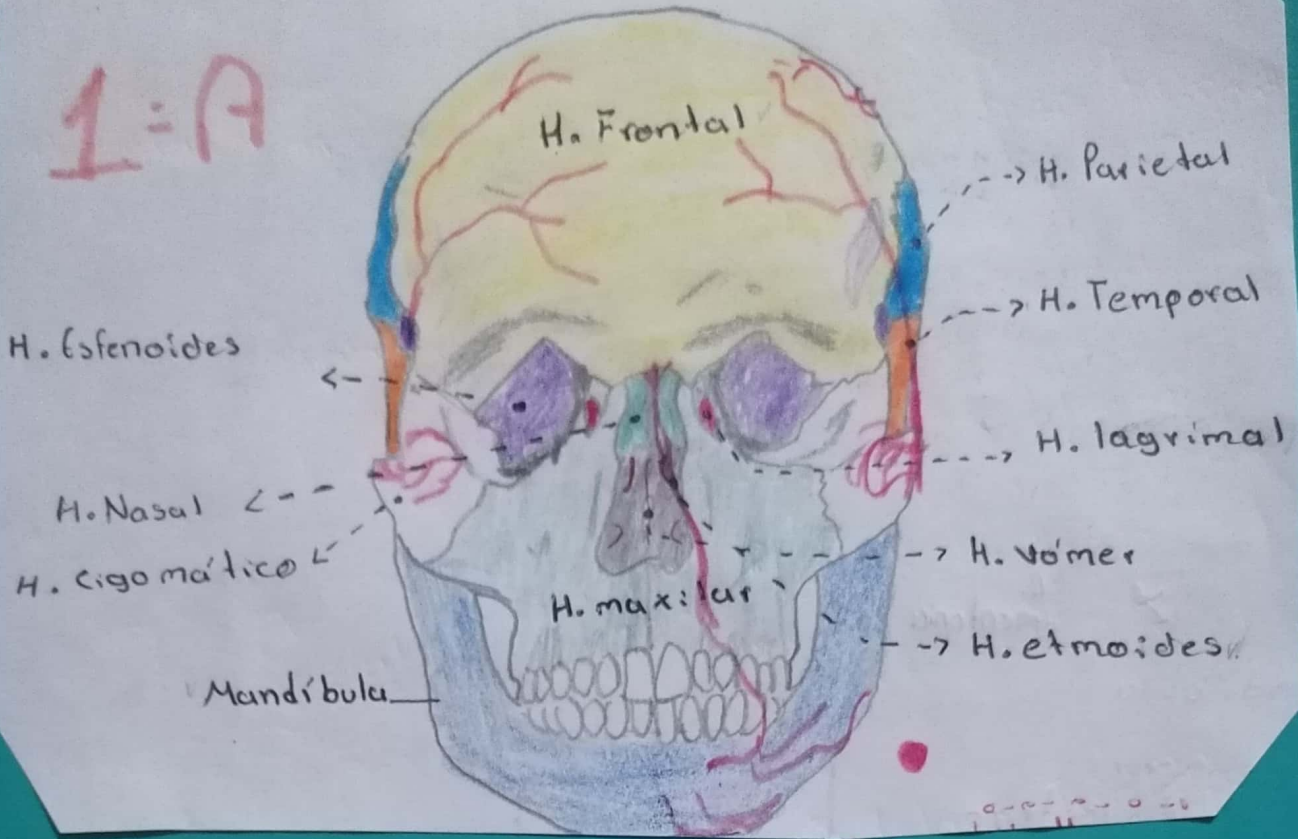 1=A
H. Frontal
H. Parietal
H. Temporal
H. Esfenoides
H. lagrimal
H. Nasal
H. Cigomático
H. vómer
H. maxilar
H. etmoides
Mandíbula